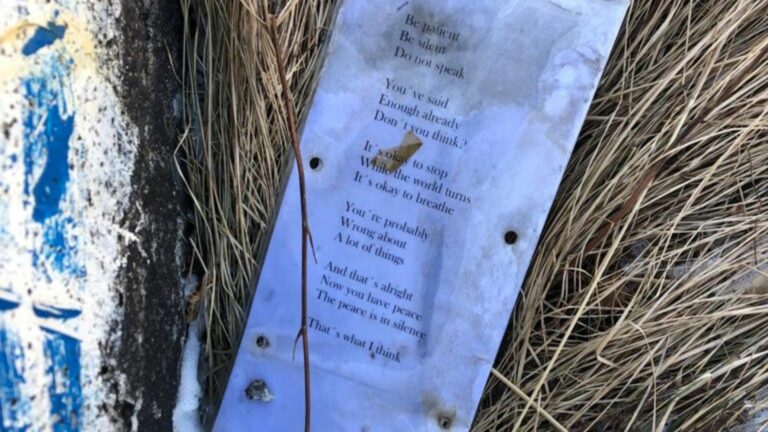 Be patient
Be silent
Do not speak
You´ve said
Enough already
Don´t you think?
It´s okay to stop
While the world turns
It´s okay to breathe
You´re probably
Wrong about
A lot of things
And that´s alright
Now you have peace
The peace is in silence
That´s what I think